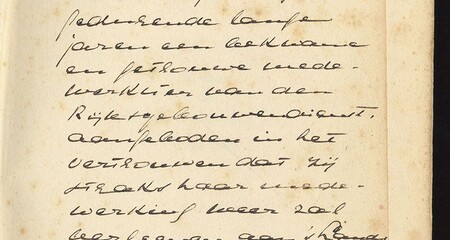 gedurende lange
jaren een bekwame
en getrouwe mede-
werkster van den
Rijksgebouwendienst,
aangeboden in het
vertrouwen dat zij
straks haar mede-
werking weer zal
verleenen aan 's Lands